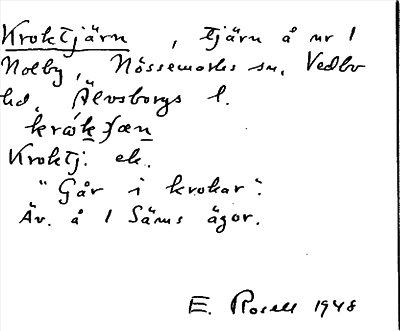 Kroktjärn, tjärn å nr 1
Nolby, Nössemarks sn. Vedbo
hd, Älvsborgs l.
Kroktj. ek.
"Går i krokar".
Äv. å 1 Säms ägor.
E. Rosell 1948